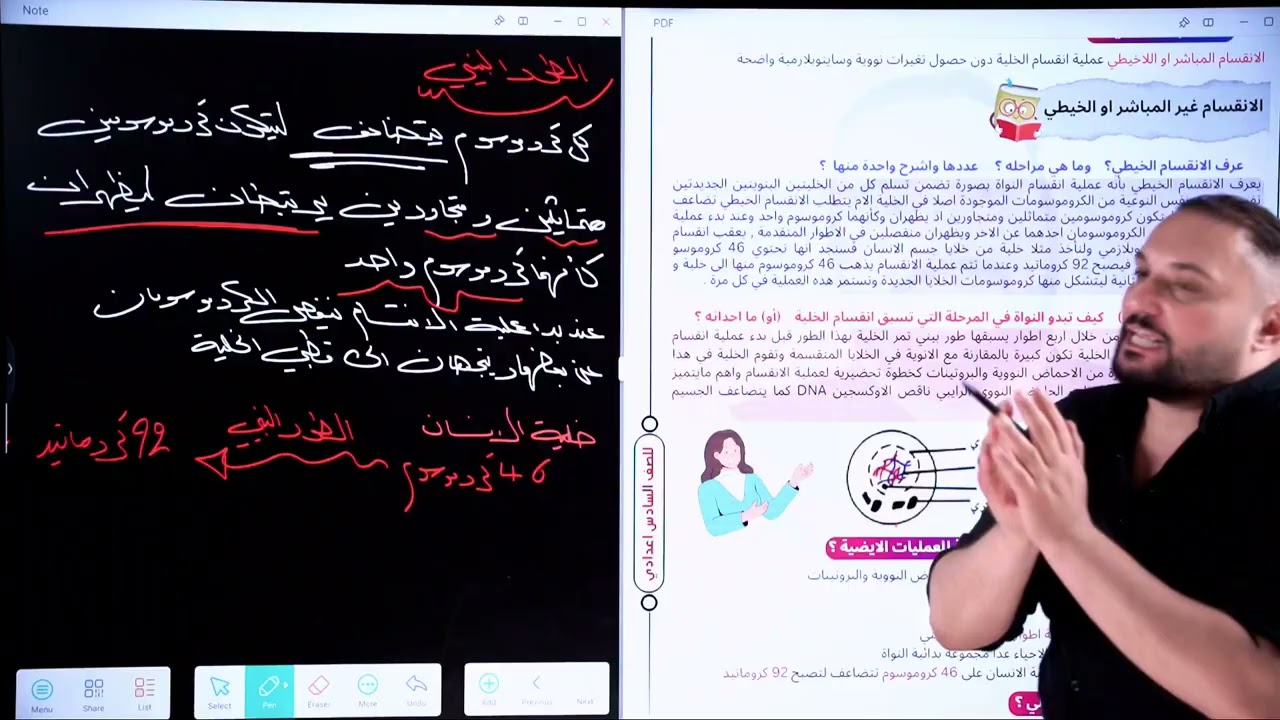 Note
الطور البيني
كل كروموسوم يتضاعف ليتكون كروموسومين
متماثلين ومتجاورين يرتبطان ليظهران
كأنهما كروموسوم واحد
عند بدا عملية الانقسام ينفصل الكروموسومان
عن بعضهما ويتجهان الى قطبي الخلية
خلية الانسان
46 كروموسوم
الطور البيني
92 كروماتيد
Menu
Share
List
Select
Pen
Eraser
More
Undo
Add
Previous
Next
PDF
الانقسام المباشر او اللاخيطي عملية انقسام الخلية دون حصول تغيرات نووية وسايتوبلازمية واضحة
الانقسام غير المباشر او الخيطي
عرف الانقسام الخيطي؟ وما هي مراحله ؟ عددها واشرح واحدة منها ؟
يعرف الانقسام الخيطي بأنه عملية انقسام النواة بصورة تضمن تسلم كل من الخليتين البنويتين الجديدتين
نفس النوعية من الكروموسومات الموجودة اصلا في الخلية الام يتطلب الانقسام الخيطي تضاعف
تكون كروموسومين متماثلين ومتجاورين اذ يظهران وكأنهما كروموسوم واحد وعند بدء عملية
الكروموسومان احدهما عن الاخر ويظهران منفصلين في الاطوار المتقدمة , يعقب انقسام
ولنأخذ مثلا خلية من خلايا جسم الانسان فسنجد انها تحتوي 46 كروموسو
فيصبح 92 كروماتيد وعندما تتم عملية الانقسام يذهب 46 كروموسوم منها الى خلية و
ثانية ليتشكل منها كروموسومات الخلايا الجديدة وتستمر هذه العملية في كل مرة .
كيف تبدو النواة في المرحلة التي تسبق انقسام الخلية (أو) ما احداثه ؟
من خلال اربع اطوار يسبقها طور بيني تمر الخلية بهذا الطور قبل بدء عملية انقسام
الخلية تكون كبيرة بالمقارنة مع الانوية في الخلايا المنقسمة وتقوم الخلية في هذا
من الاحماض النووية والبروتينات كخطوة تحضيرية لعملية الانقسام واهم مايتميز
النووي الرايبي ناقص الاوكسجين DNA كما يتضاعف الجسيم
للصف السادس اعدادي
العمليات الايضية ؟
النووية والبروتينات
الاحياء عدا مجموعة بدائية النواة
الانسان على 46 كروموسوم تتضاعف لتصبح 92 كروماتيد